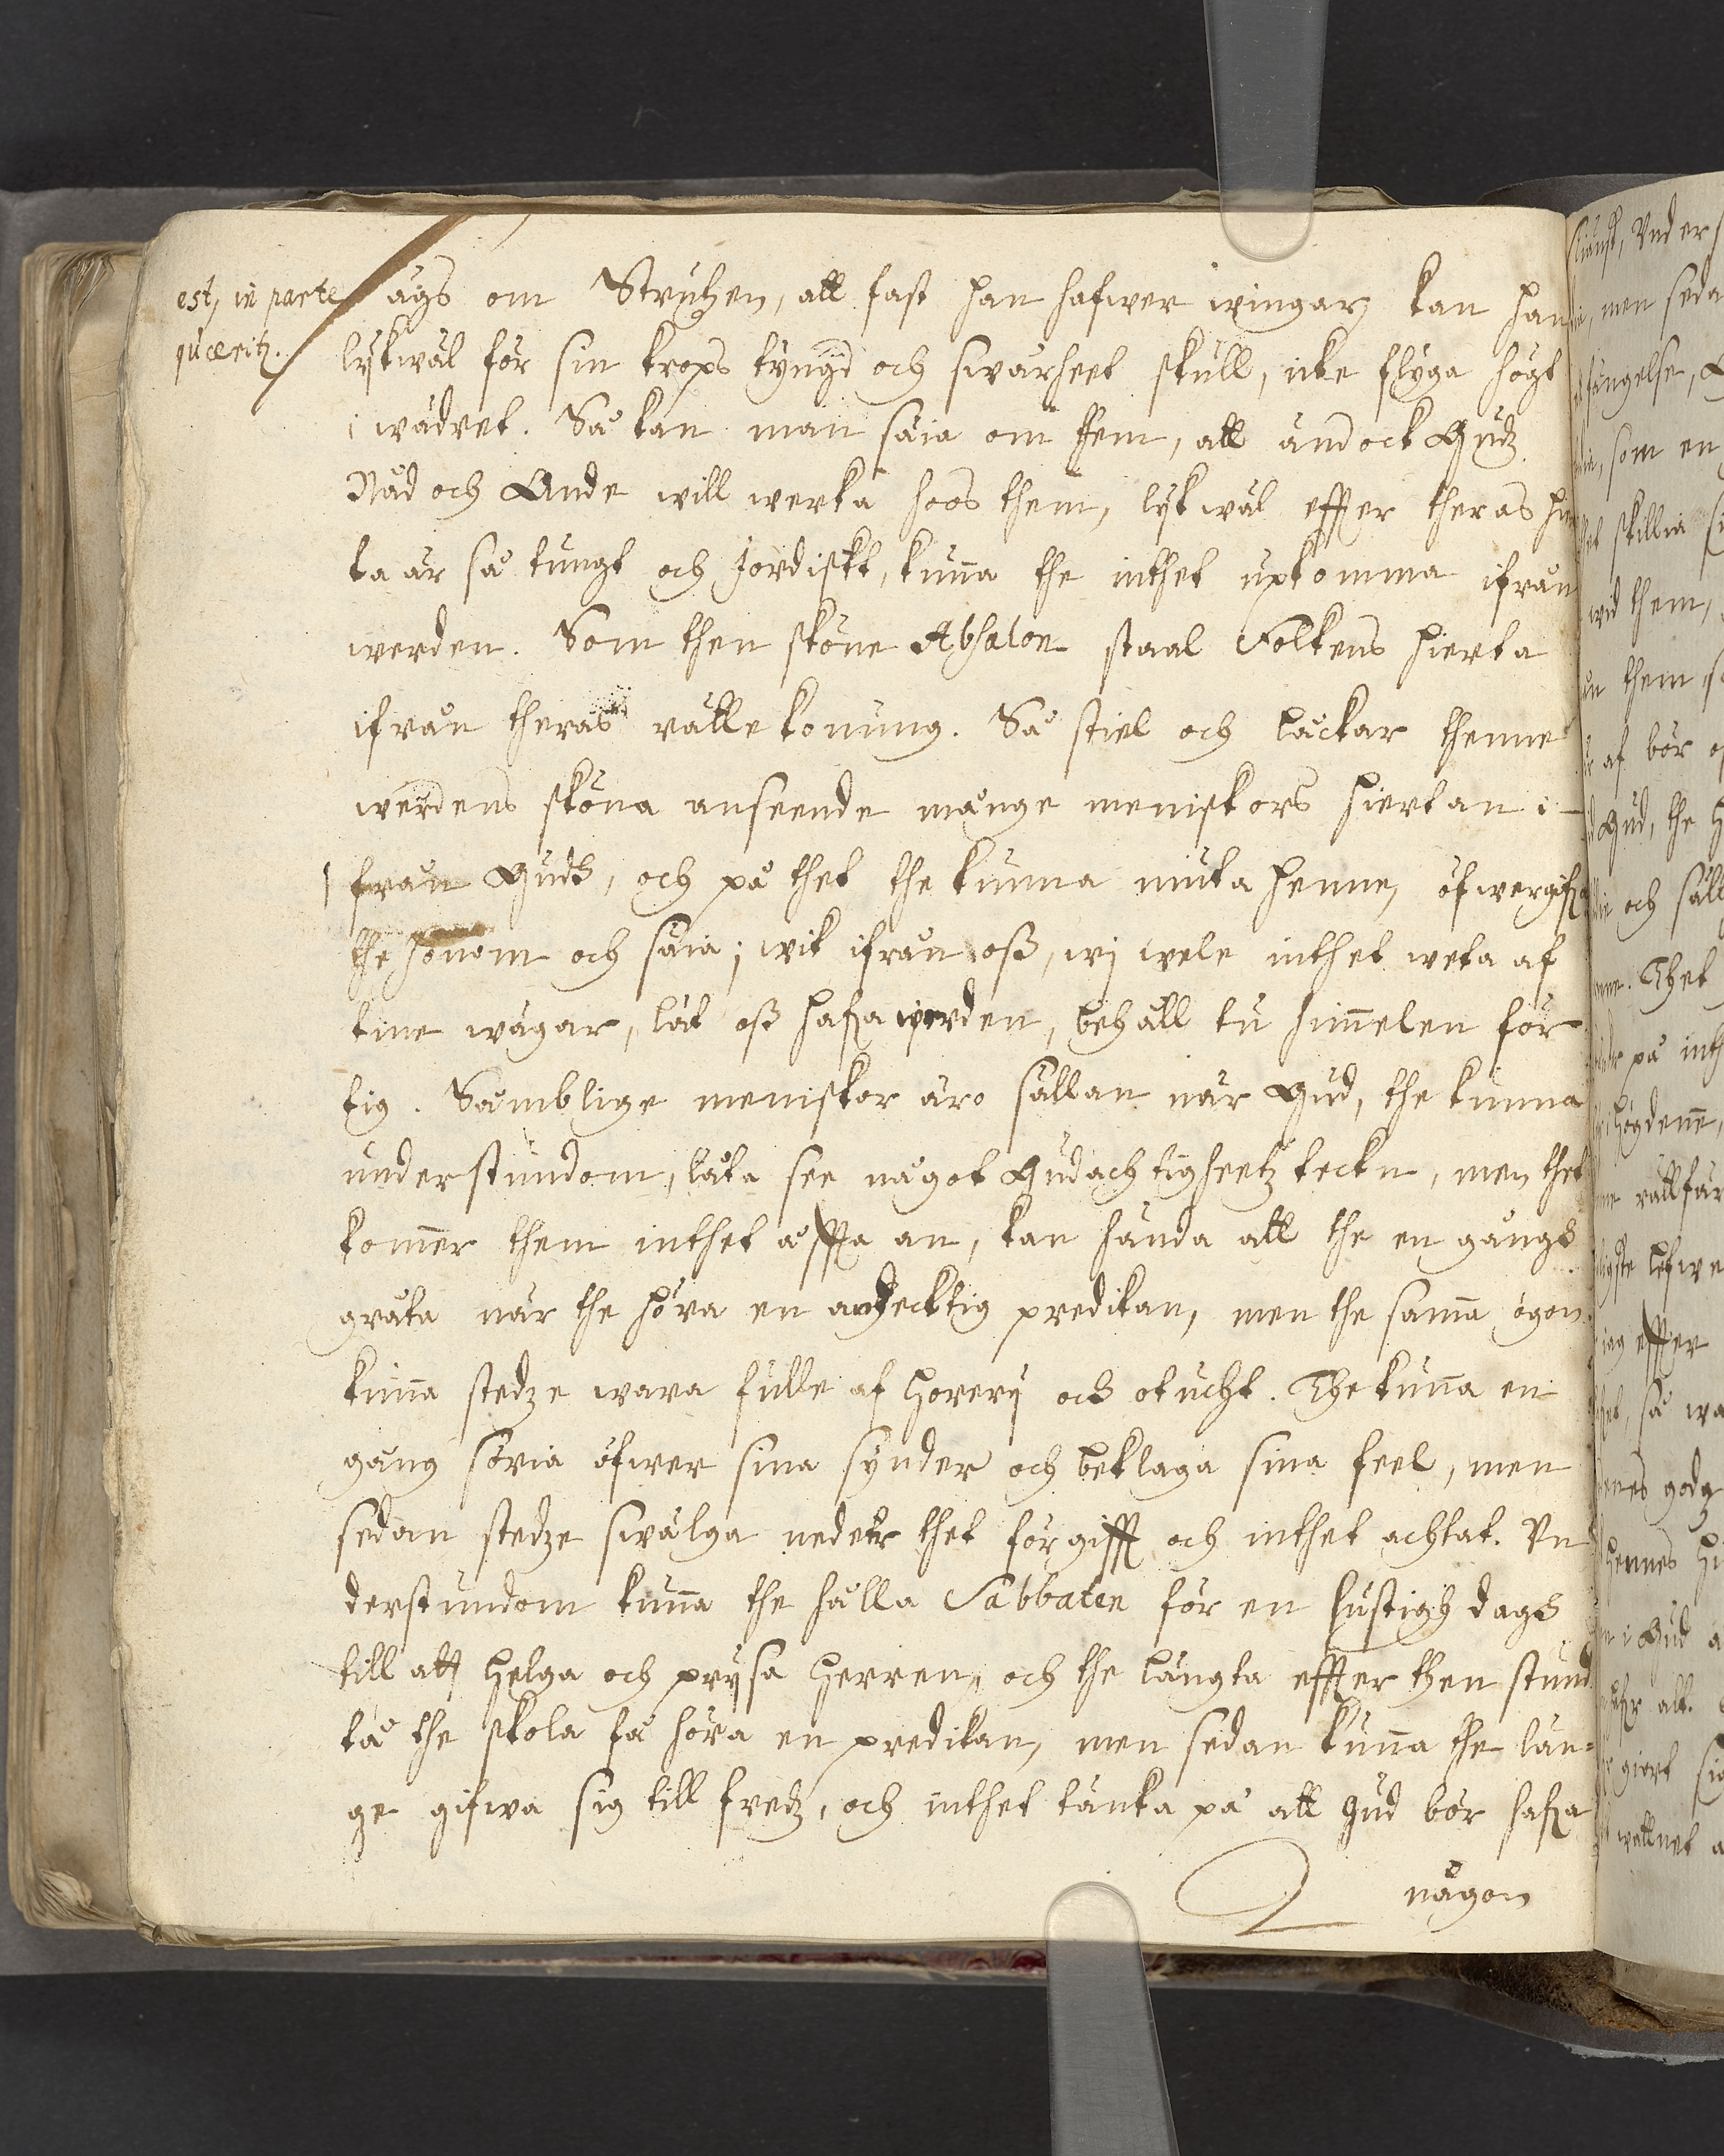 est, in parte
quærit.
ägs om Strutzen, att fast han hafwer wingar, kan han
lykwäl för sin krops tyngd och swårheet skull, icke flyga högt
i wädret. Så kan man säia om them, att ändock Gudz
Nåd och Ande will werka hoos them, lykwäl effter theras hier
ta är så tungt och Jordiskt, kun̄a the inthet upkomma ifrån
werden. Som then sköne Absalon staal Folkens hierta
ifrån theras rätte konung. Så stiel och låckar thenne
werdens sköna anseende månge meniskors hiertan i-
från Gudh, och på thet the kunna niuta henne, öfwergifa
the honom och säia; wik ifrån osß, wj wele inthet weta af
tine wägar, låt osß hafa werden, behålt tu him̄elen för
tig. Somblige meniskor äro sällan när Gud, the kunna
understundom, låta see något Gudachtigheetz teckn, men thet
kom̄er them inthet offta an, kan hända att the en gångh
gråta när the höra en andecktig predikan, men the sam̄a ögon
kun̄a stedze wara fulle af horerij och otucht. The kun̄a en
gång söria öfwer sina synder och beklaga sina feel, men
sedan stedze swälga neder thet förgifft och inthet achtat. Vn
derstundom kun̄a the hålla Sabbaten för en lustigh dagh
till att helga och prijsa Herren, och the längta effter then stund
tå the skola få höra en predikan, men sedan kun̄a the län-
ge gifwa sig till fredz, och inthet tänka på att Gud bör hafa
någon